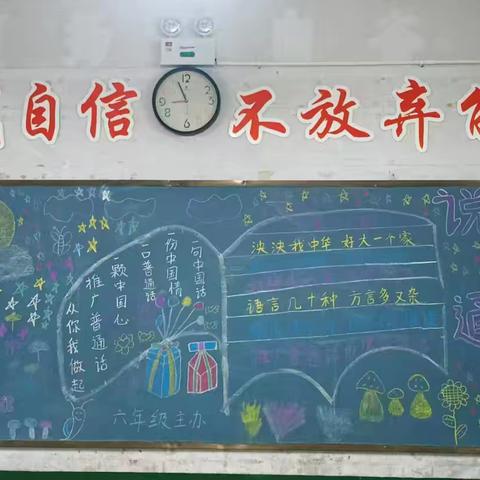 自信
不放弃
说
通
泱泱我中华 好大一个家
语言几十种 方言多又杂
一句中国话
一份中国情
一口普通话
一颗中国心
推广普通话
从你我做起
六年级主办